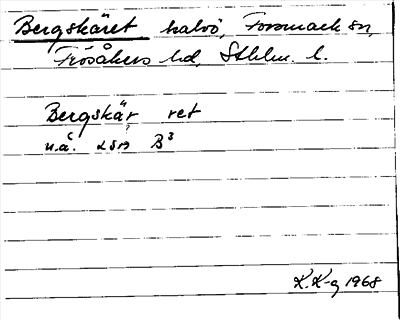 Bergskäret halvö, Forsmark sn,
Frösåkers hd, Sthlm. l.
Bergskär ret
u.å. LSA B3
K.K-g 1968